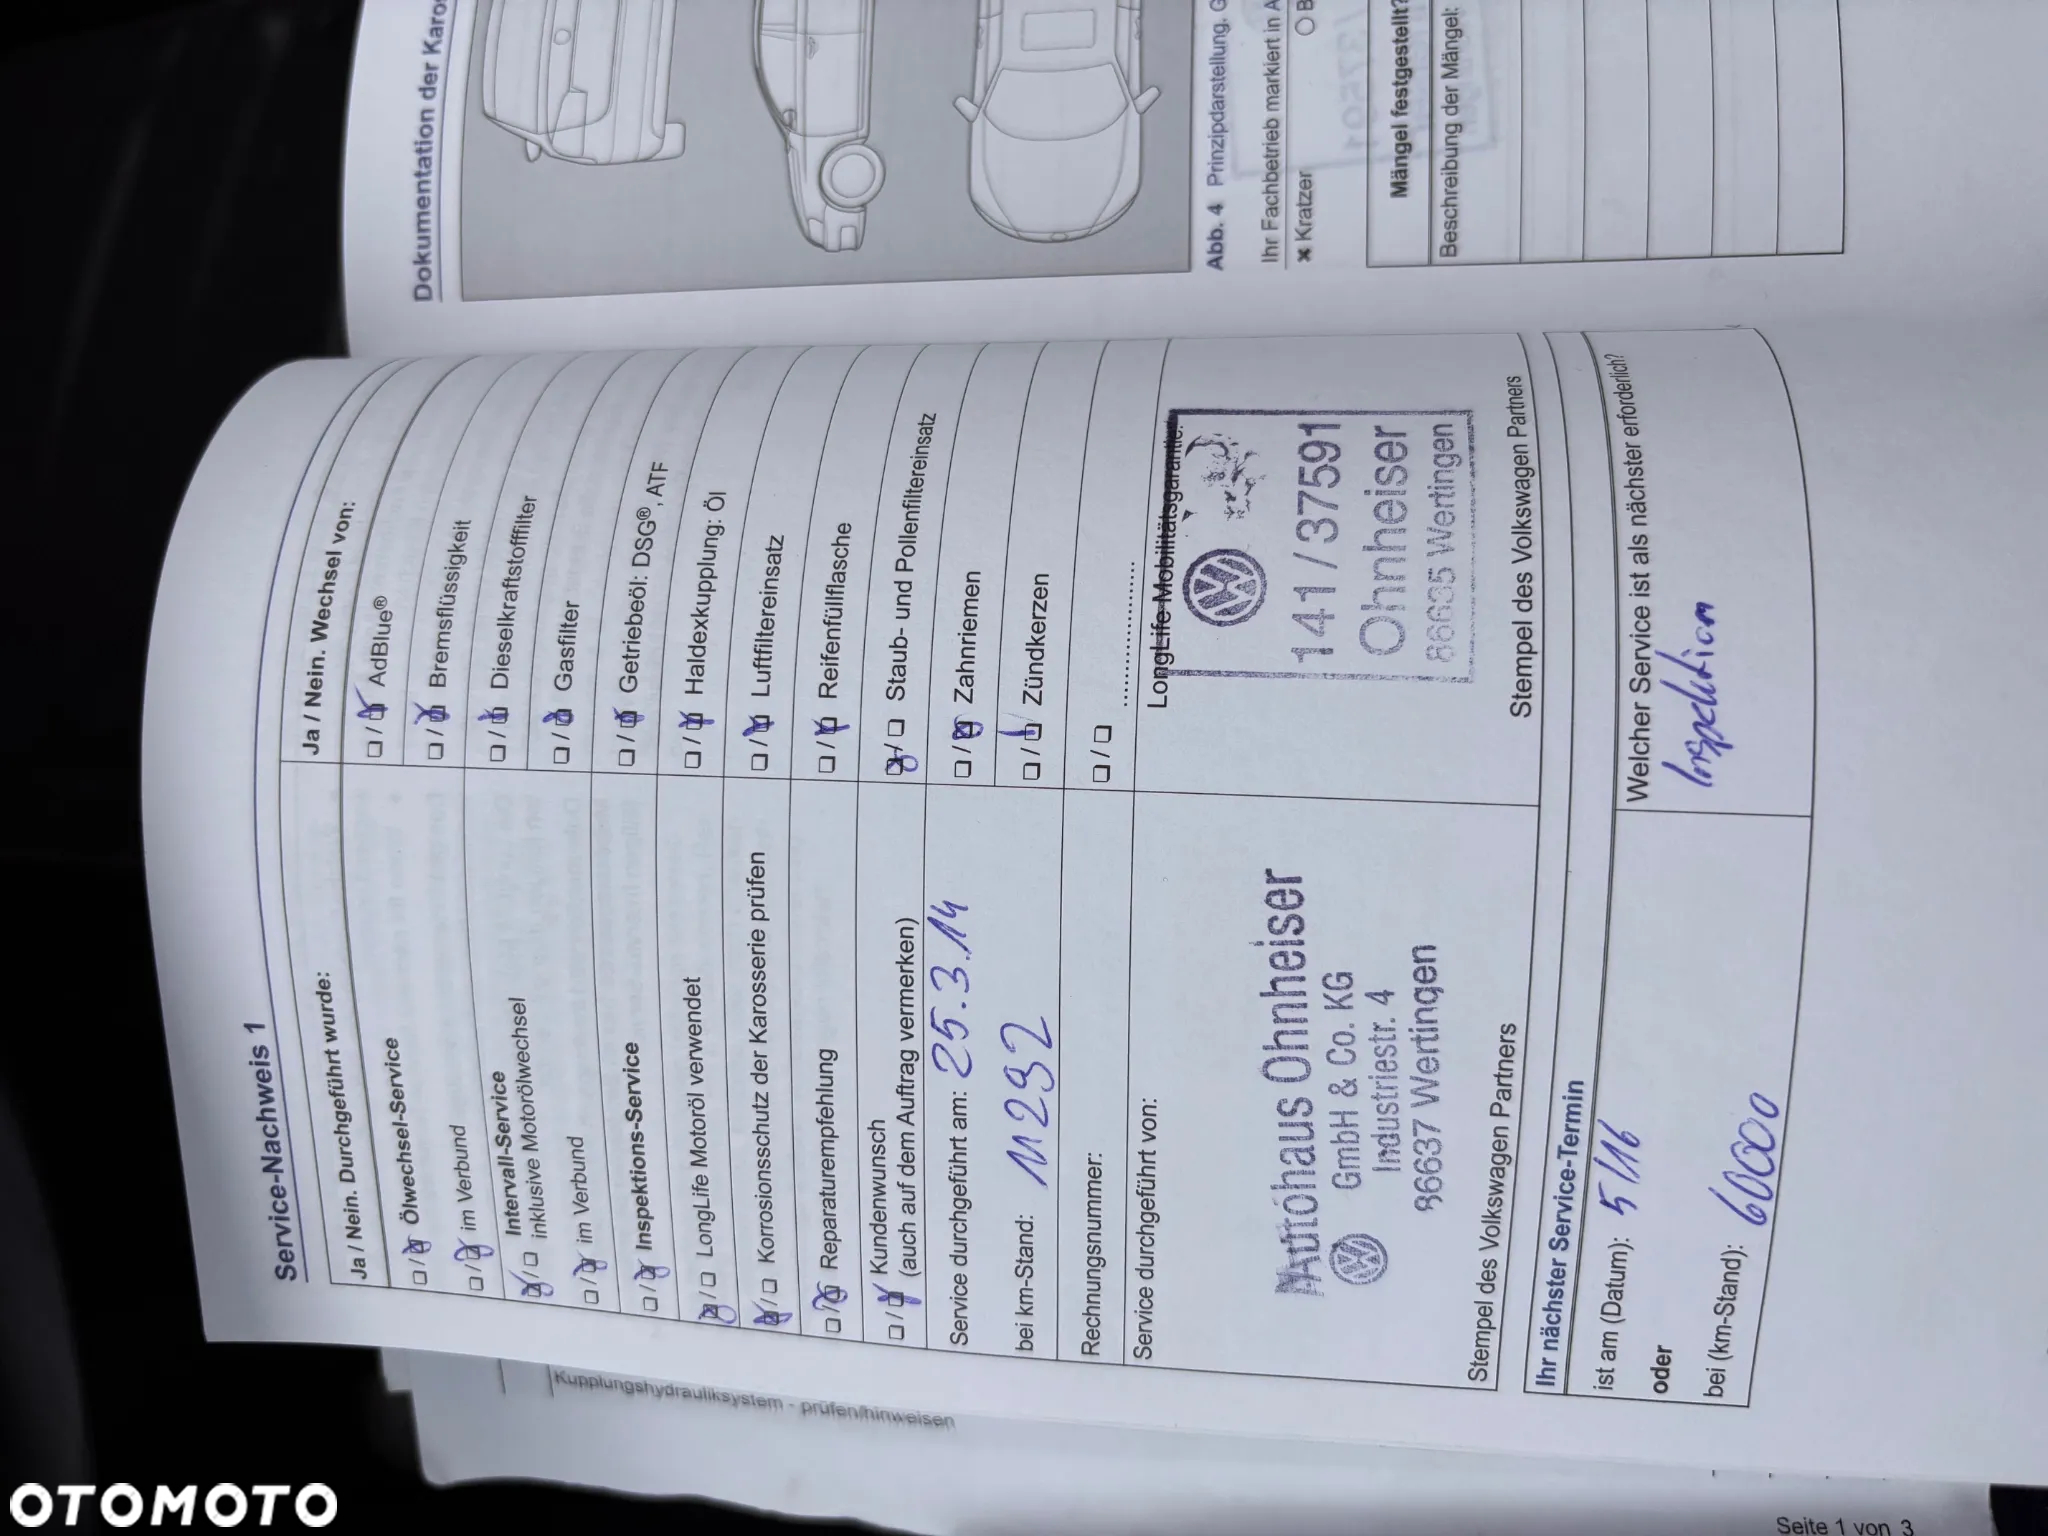 Service-Nachweis 1
Ja / Nein. Durchgeführt wurde:
Ölwechsel-Service
im Verbund
Intervall-Service
inklusive Motorölwechsel
im Verbund
Inspektions-Service
LongLife Motoröl verwendet
Korrosionsschutz der Karosserie prüfen
Reparaturempfehlung
Kundenwunsch
(auch auf dem Auftrag vermerken)
Service durchgeführt am: 25.3.14
bei km-Stand: 11292
Rechnungsnummer:
Service durchgeführt von:
Autohaus Ohnheiser
GmbH & Co. KG
Industriestr. 4
86637 Wertingen
Stempel des Volkswagen Partners
Ja / Nein. Wechsel von:
AdBlue®
Bremsflüssigkeit
Dieselkraftstofffilter
Gasfilter
Getriebeöl: DSG®, ATF
Haldexkupplung: Öl
Luftfiltereinsatz
Reifenfüllflasche
Staub- und Pollenfiltereinsatz
Zahnriemen
Zündkerzen
LongLife Mobilitätsgarantie:
141/37591
Ohnheiser
86635 Wertingen
Stempel des Volkswagen Partners
Ihr nächster Service-Termin
ist am (Datum): 5/16
oder
bei (km-Stand): 60000
Welcher Service ist als nächster erforderlich?
Inspektion
Dokumentation der Karos
Abb. 4 Prinzipdarstellung. G
Ihr Fachbetrieb markiert in A
× Kratzer
B
Mängel festgestellt?
Beschreibung der Mängel:
Kupplungshydrauliksystem - prüfen/hinweisen
Seite 1 von 3
OTOMOTO